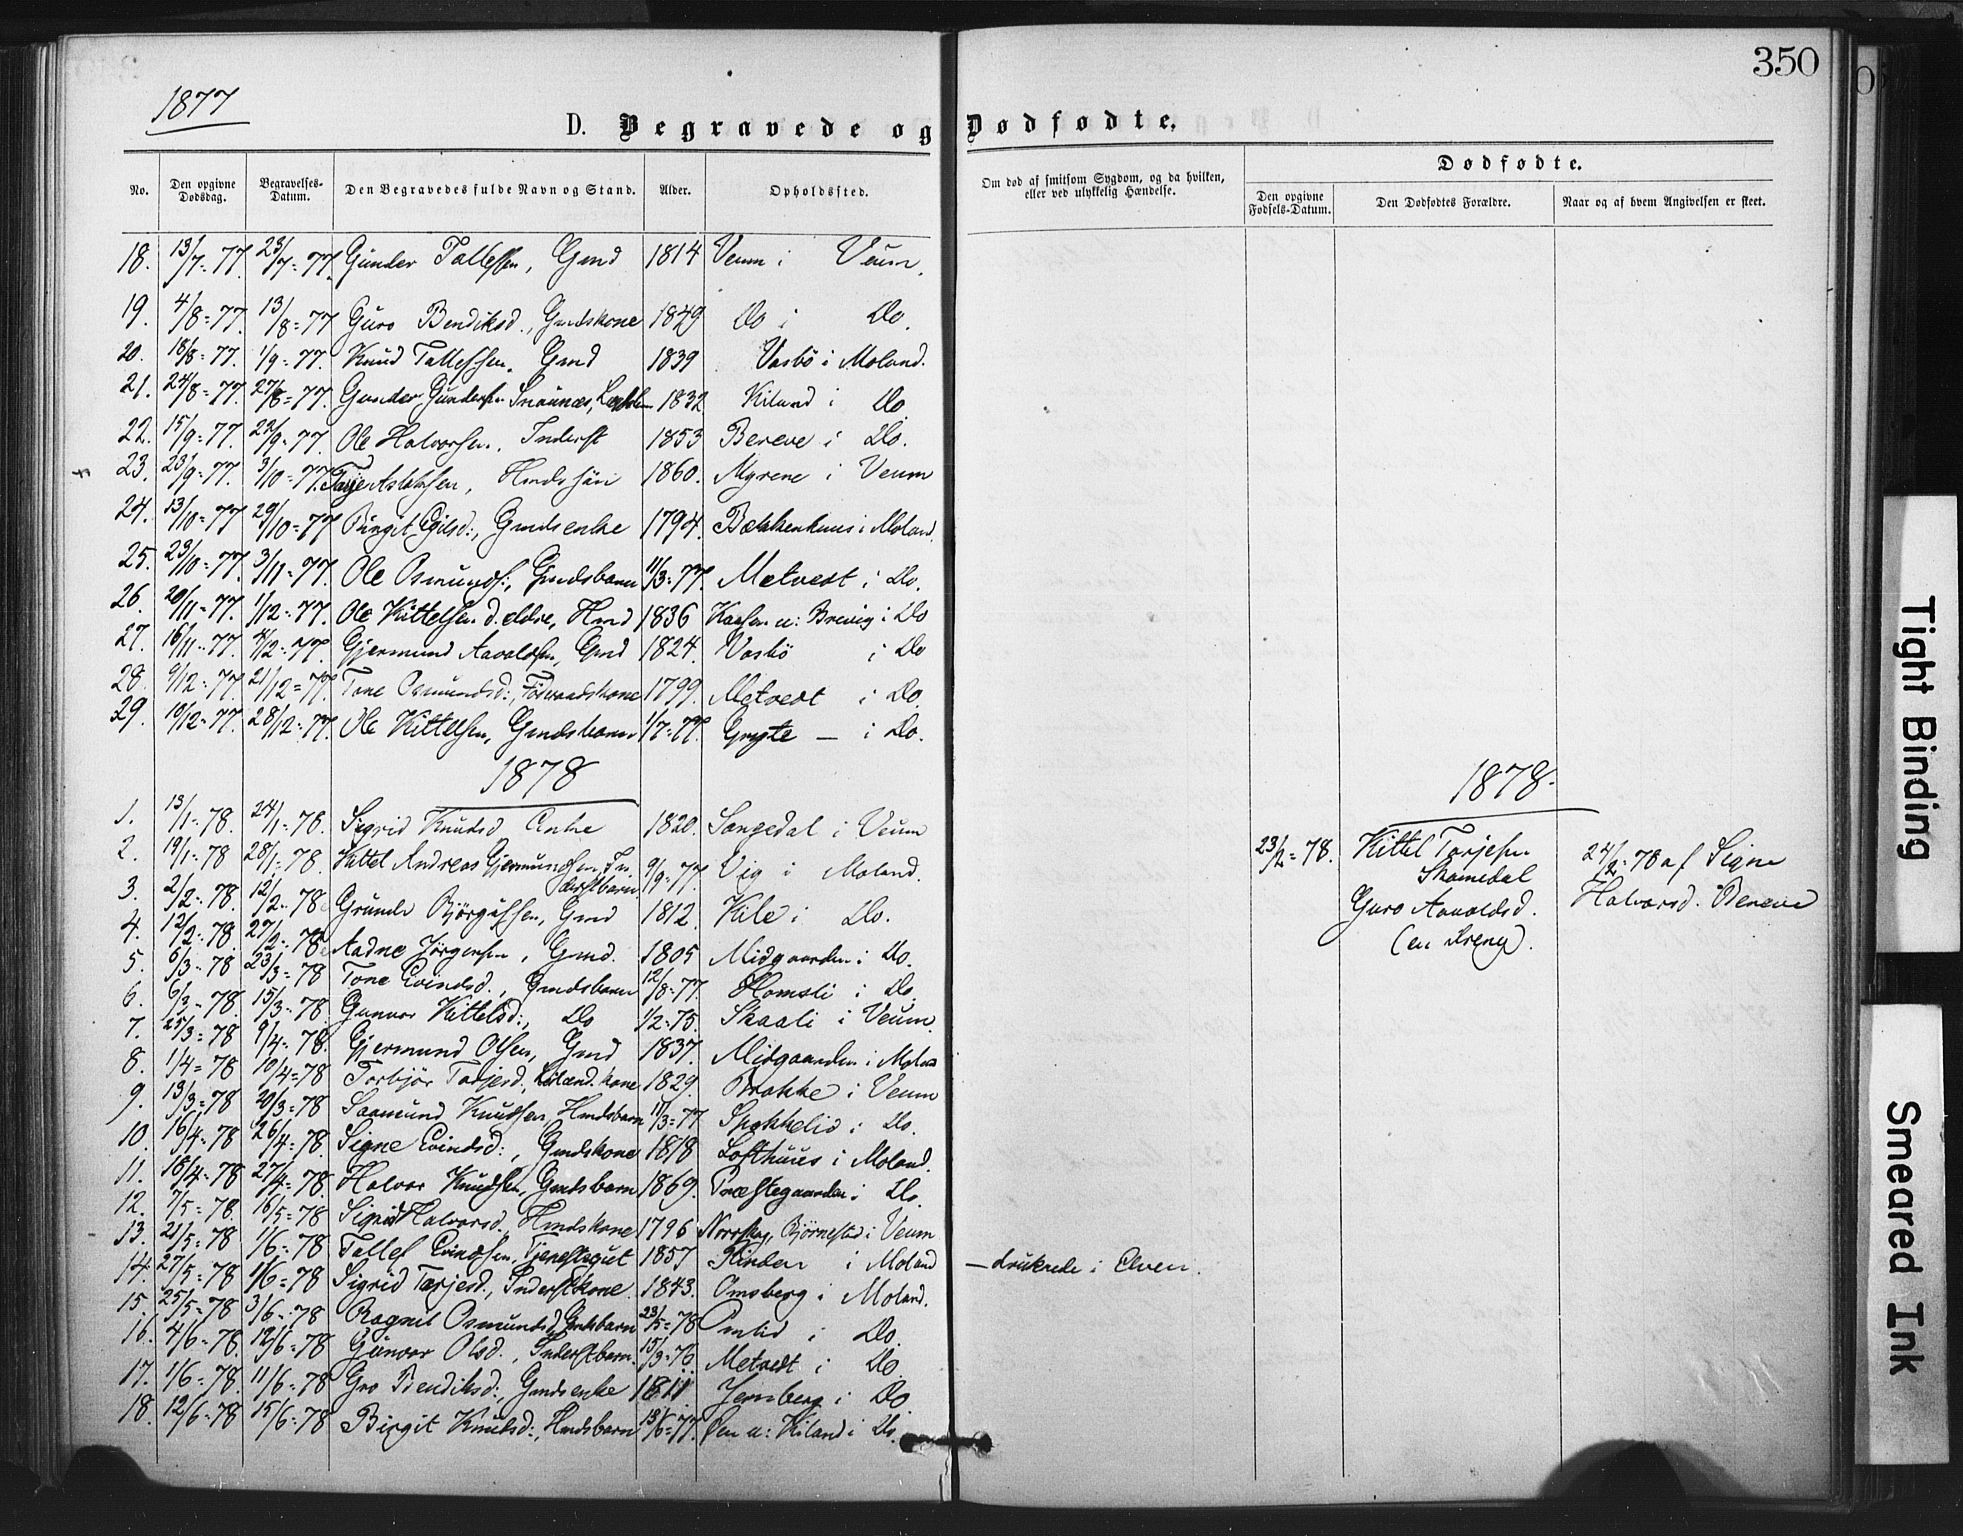 350
1877
D. Begravede og Dødfødte.
No. Den opgivne Dødsdag. Begravelses-Datum. Den Begravedes fulde Navn og Stand. Alder. Opholdssted. Om død af smitsom Sygdom, og da hvilken, eller ved ulykkelig Hændelse. Dødfødte. Den opgivne Fødsels-Datum. Den Dødfødtes Forældre. Naar og af hvem Angivelsen er skeet.
18. 13/7=77. 23/7=77. Gunder Tallefsen, Gmd 1814 Veum i Veum.
19. 4/8=77. 13/8=77 Guro Bendiksd., Gmdskone 1849 Do i Do.
20. 18/8=77. 1/9=77. Knud Tallefsen, Gmd 1839 Vasbö i Moland.
21. 24/8=77. 27/8=77. Gunder Gundersen Snaunæs, 1832 Kiland i Do.
22. 15/9=77. 22/9=77. Ole Halvorsen, Inderst 1853 Bereve i Do.
23. 23/9=77. 3/10=77. Tarje Aslaksen, Hmdssön 1860. Myrene i Veum
24. 13/10=77 29/10=77 Birgit Egilsd:, Gmdsenke 1794. Bækkenhuus i Moland.
25. 23/10=77. 3/11=77. Ole Osmunds:, Gmdsbarn 11/3=77. Metvedt i Do.
26. 20/11=77. 1/12=77. Ole Kittelsen d. eldre, Hmd 1836 Kaasen u: Brevig i Do
27. 16/11=77. 4/12=77. Gjermund Aavoldsen, Gmd 1824. Vasbö i Do
28. 9/12=77. 21/12=77. Tone Osmundsd:, Föderaadskone 1799. Metvedt i Do.
29. 10/12=77. 28/12=77. Ole Kittelsen, Gmdsbarn 1/7=77. Gryte — i Do.
1878
1878.
1. 13/1=78. 24/1=78. Sigrid Knudsd Enke 1820. Songedal i Veum
2. 19/1=78 28/1=78. Kittel Andreas Gjermundsen, In-
derstbarn 9/9=77. Vig i Moland.
3. 2/2=78. 12/2=78 Grunde Björgulfsen, Gmd 1812 Kile i Do.
4. 12/2=78. 27/2=78. Aadne Jörgensen, Gmd. 1805 Midgaarden i Do.
5. 6/3=78 23/3=78 Tone Evindsd., Gmdsbarn 12/8=77. Homsli i Do.
6. 6/3=78. 15/3=78. Gunvor Kittelsd:, Do 1/2=75. Skaali i Veum.
7. 25/3=78 9/4=78. Gjermund Olsen, Gmd 1837. Midgaarden i Moland
8. 1/4=78 10/4=78 Torbjör Tarjesd., kone 1829. Brokke i Veum
9. 13/3=78 20/3=78 Saamund Knudsen, Hmdsbarn 11/3=77 Spokkelid i Do.
10. 16/4=78 26/4=78. Signe Evindsd:, Gmdskone 1818 Lofthuus i Moland.
11. 18/4=78 27/4=78. Halvor Knudsen, Gmdsbarn 1869. Præstegaarden i Do.
12. 7/5=78. 16/5=78 Sigrid Halvorsd., Hmdskone 1796 Norrskog, Björnestad i Veum
13. 21/5=78 1/6=78 Tallef Evindsen, Tjenestegut 1857 Flinden i Moland —druknede i Elven.
14. 27/5=78 1/6=78 Sigrid Tarjesd., Inderstkone. 1843. Omsberg i Moland.
15. 25/5=78 3/6=78 Ragnil Osmundsd, Gmdsbarn 23/5=78 Omlid i Do.
16. 4/6=78. 12/6=78 Gunvor Olsd., Inderstbarn. 15/3=76 Metvedt i Do.
17. 1/6=78. 11/6=78 Gro Bendiksd:, Gmdsenke 1811 Jernberg i Do
18. 12/6=78 15/6=78 Birgit Knudsd:, Hmdsbarn 13/6=77. Öen u: Kiland i Do.
23/2=78. Kittel Tarjesen
Skomedal
Guro Aavoldsd.
(en Dreng).
24/2=78 af Signe
Halvorsd. Bereve
Tight Binding
Smeared Ink